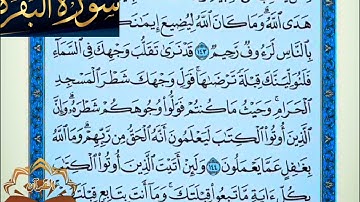 سورة البقرة
هَدَى ٱللَّهُ وَمَا كَانَ ٱللَّهُ لِيُضِيعَ إِيمَـٰنَكُمْ
بِٱلنَّاسِ لَرَءُوفٌ رَّحِيمٌ ١٤٣ قَدْ نَرَىٰ تَقَلُّبَ وَجْهِكَ فِى ٱلسَّمَآءِ
فَلَنُوَلِّيَنَّكَ قِبْلَةً تَرْضَىٰهَا فَوَلِّ وَجْهَكَ شَطْرَ ٱلْمَسْجِدِ
ٱلْحَرَامِ وَحَيْثُ مَا كُنتُمْ فَوَلُّوا۟ وُجُوهَكُمْ شَطْرَهُۥ وَإِنَّ
ٱلَّذِينَ أُوتُوا۟ ٱلْكِتَـٰبَ لَيَعْلَمُونَ أَنَّهُ ٱلْحَقُّ مِن رَّبِّهِمْ وَمَا ٱللَّهُ
بِغَـٰفِلٍ عَمَّا يَعْمَلُونَ ١٤٤ وَلَئِنْ أَتَيْتَ ٱلَّذِينَ أُوتُوا۟ ٱلْكِتَـٰبَ
بِكُلِّ ءَايَةٍ مَّا تَبِعُوا۟ قِبْلَتَكَ وَمَآ أَنتَ بِتَابِعٍ قِبْلَتَهُمْ